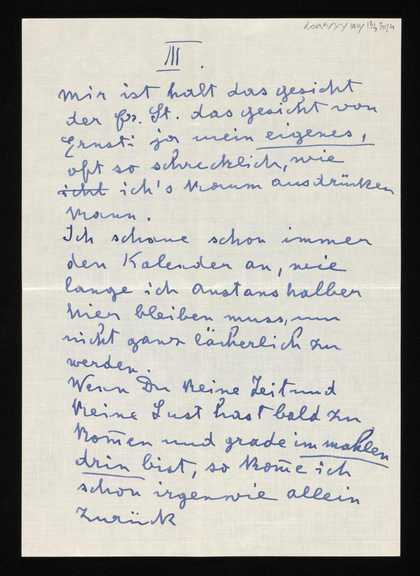 III.
mir ist halt das gesicht
der fr. St. das gesicht von
Ernst: ja mein eigenes,
oft so schrecklich, wie
ich's kaum ausdrücken
kann.
Ich schaue schon immer
den Kalender an, wie
lange ich anstanshalber
hier bleiben muss, um
nicht ganz lächerlich zu
werden.
Wenn Du keine Zeit und
keine Lust hast bald zu
kom̄en und grade im mahlen
drin bist, so kom̄e ich
schon irgenwie allein
zurück